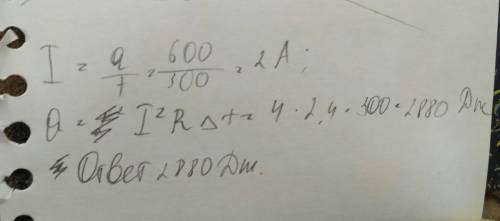 I = q/t = 600/300 = 2 A;
Q = I² R Δt = 4 · 2,4 · 300 = 2880 Дж
Ответ 2880 Дж.